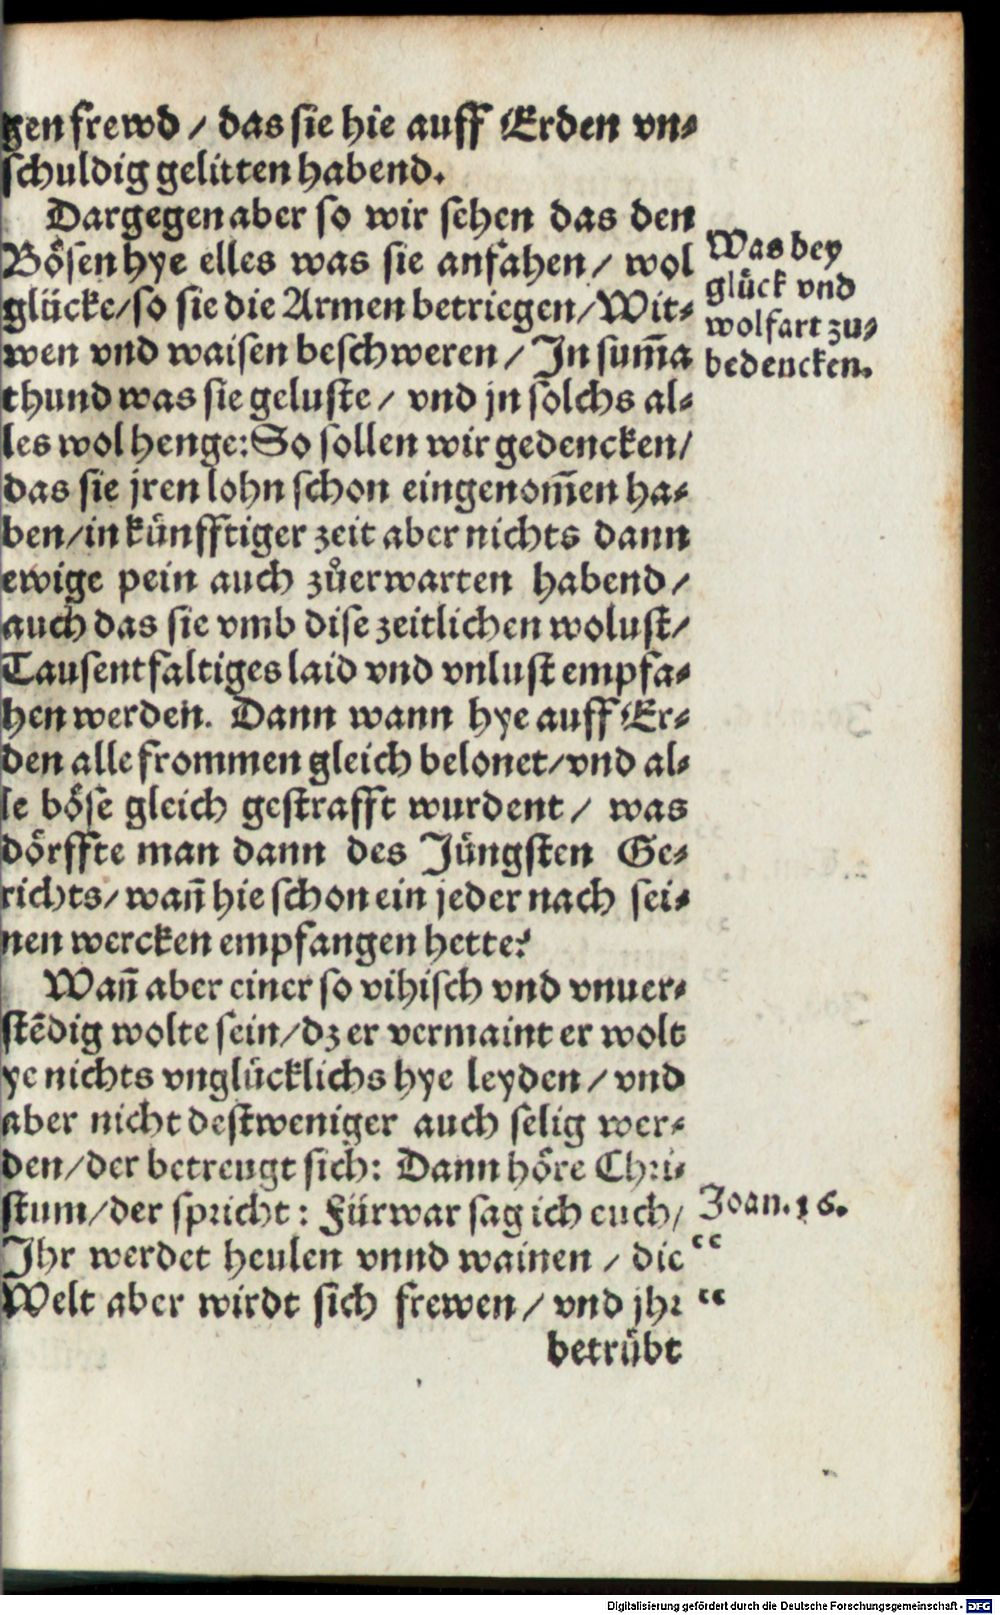 gen frewd / das sie hie auff Erden vn⸗
schuldig gelitten habend.
Dargegen aber so wir sehen das den
Bösen hye elles was sie anfahen / wol
glücke/so sie die Armen betriegen/Wit⸗
wen vnd waisen beschweren / In sum̃a
thund was sie geluste / vnd jn solchs al⸗
les wol henge: So sollen wir gedencken/
das sie jren lohn schon eingenom̃en ha⸗
ben/in künfftiger zeit aber nichts dann
ewige pein auch zůerwarten habend /
auch das sie vmb dise zeitlichen wolust/
Tausentfaltiges laid vnd vnlust empfa⸗
hen werden. Dann wann hye auff Er⸗
den alle frommen gleich belonet/vnd al⸗
le böse gleich gestrafft wurdent / was
dörffte man dann des Jüngsten Ge⸗
richts/wañ hie schon ein jeder nach sei⸗
nen wercken empfangen hette?
Wañ aber einer so vihisch vnd vnuer⸗
stẽdig wolte sein/dz er vermaint er wolt
ye nichts vnglücklichs hye leyden / vnd
aber nicht destweniger auch selig wer⸗
den/der betreugt sich: Dann höre Chri⸗
stum/der spricht: Fürwar sag ich euch/
Ihr werdet heulen vnnd wainen / die
Welt aber wirdt sich frewen / vnd jhr
betrübt
Was bey
glück vnd
wolfart zu⸗
bedencken.
Joan. 16.
“
“
Digitalisierung gefördert durch die Deutsche Forschungsgemeinschaft - DFG